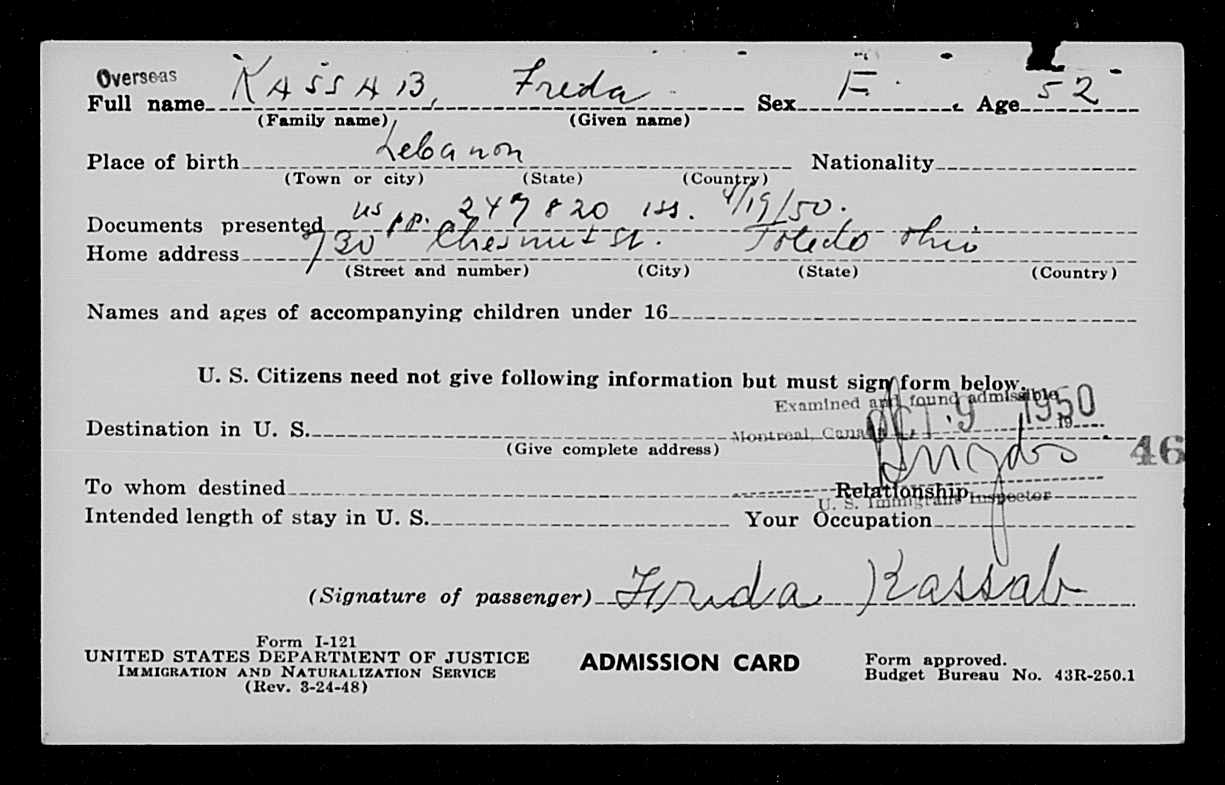 Overseas
Full name KASSAB, Freda Sex F. Age 52
(Family name) (Given name)
Place of birth Lebanon Nationality
(Town or city) (State) (Country)
Documents presented US pp. 247820 iss. 4/19/50.
Home address 730 Chesnut St. Toledo Ohio
(Street and number) (City) (State) (Country)
Names and ages of accompanying children under 16
U. S. Citizens need not give following information but must sign form below.
Examined and found admissible
OCT. 9 1950
Destination in U. S. Montreal, Canada 19
(Give complete address)
46
To whom destined Relationship
U. S. Immigrant Inspector
Intended length of stay in U. S. Your Occupation
(Signature of passenger) Frida Kassab
Form I-121
UNITED STATES DEPARTMENT OF JUSTICE
IMMIGRATION AND NATURALIZATION SERVICE
(Rev. 3-24-48)
ADMISSION CARD
Form approved.
Budget Bureau No. 43R-250.1